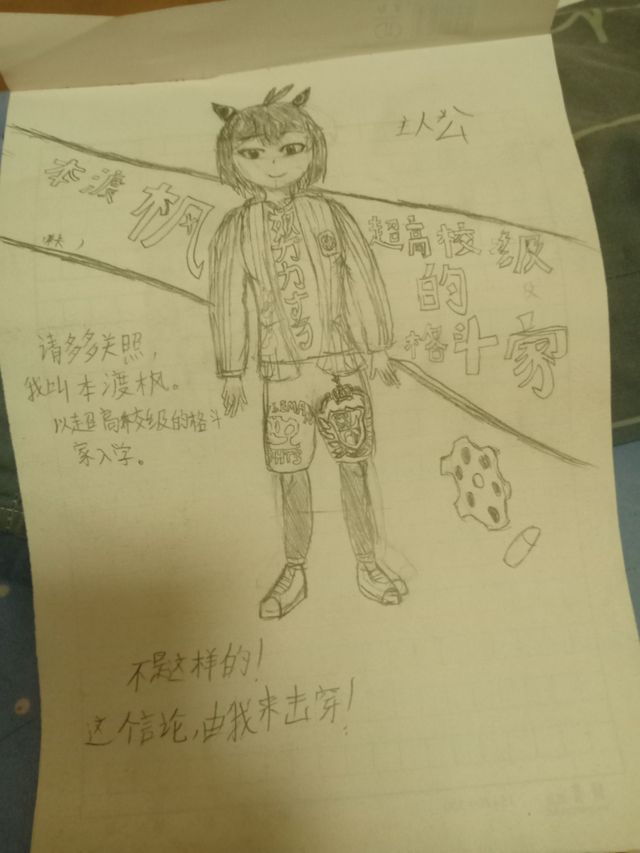 主人公
本渡
枫
超高校级
的
格斗家
请多多关照，
我叫本渡枫。
以超高校级的格斗
家入学。
不是这样的！
这个言论，由我来击穿！